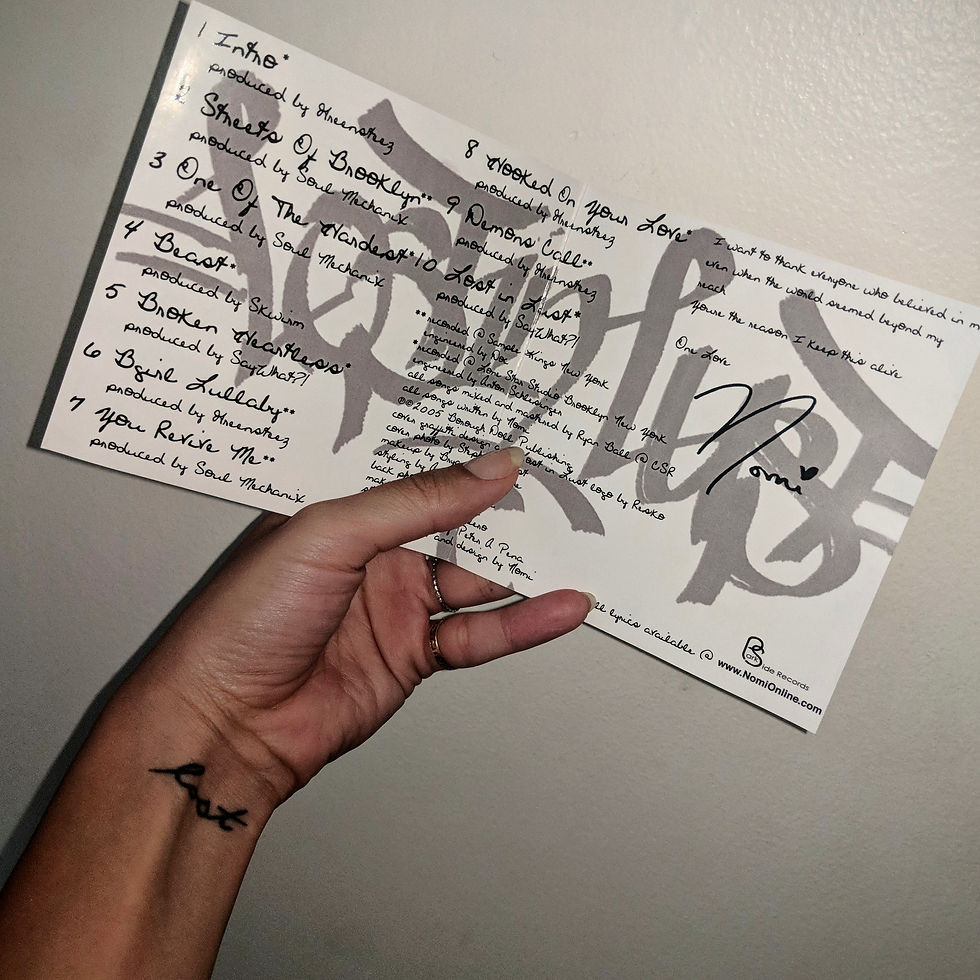 1 Intro*
produced by Threenstrez
2 Streets Of Brooklyn**
produced by Soul Mechanix
3 One Of The Hardest*
produced by Soul Mechanix
4 Beast*
produced by Skwirm
5 Broken Heartless*
produced by SayWhat?!
6 Bgirl Lullaby**
produced by Threenstrez
7 You Revive Me**
produced by Soul Mechanix
8 Hooked On Your Love*
produced by Threenstrez
9 Demons Call**
produced by Threenstrez
10 Lost in Lust*
produced by SayWhat?!
**recorded @ Sample Kings New York
engineered by Doc
*recorded @ Lone Star Studio Brooklyn New York
engineered by Anton
all songs mixed and mastered by Ryan Ball @ CSR
all songs written by Nomi
℗©2005 Borough Doll Publishing
cover graffiti design Lost in Lust logo by Resko
cover photo by
makeup by
styling by
back
by Peter A Pena
and design by Nomi
all lyrics available @ www.NomiOnline.com
I want to thank everyone who believed in
even when the world seemed beyond my
reach
You're the reason I keep this alive
One Love
Nomi
BarkSide Records
lost